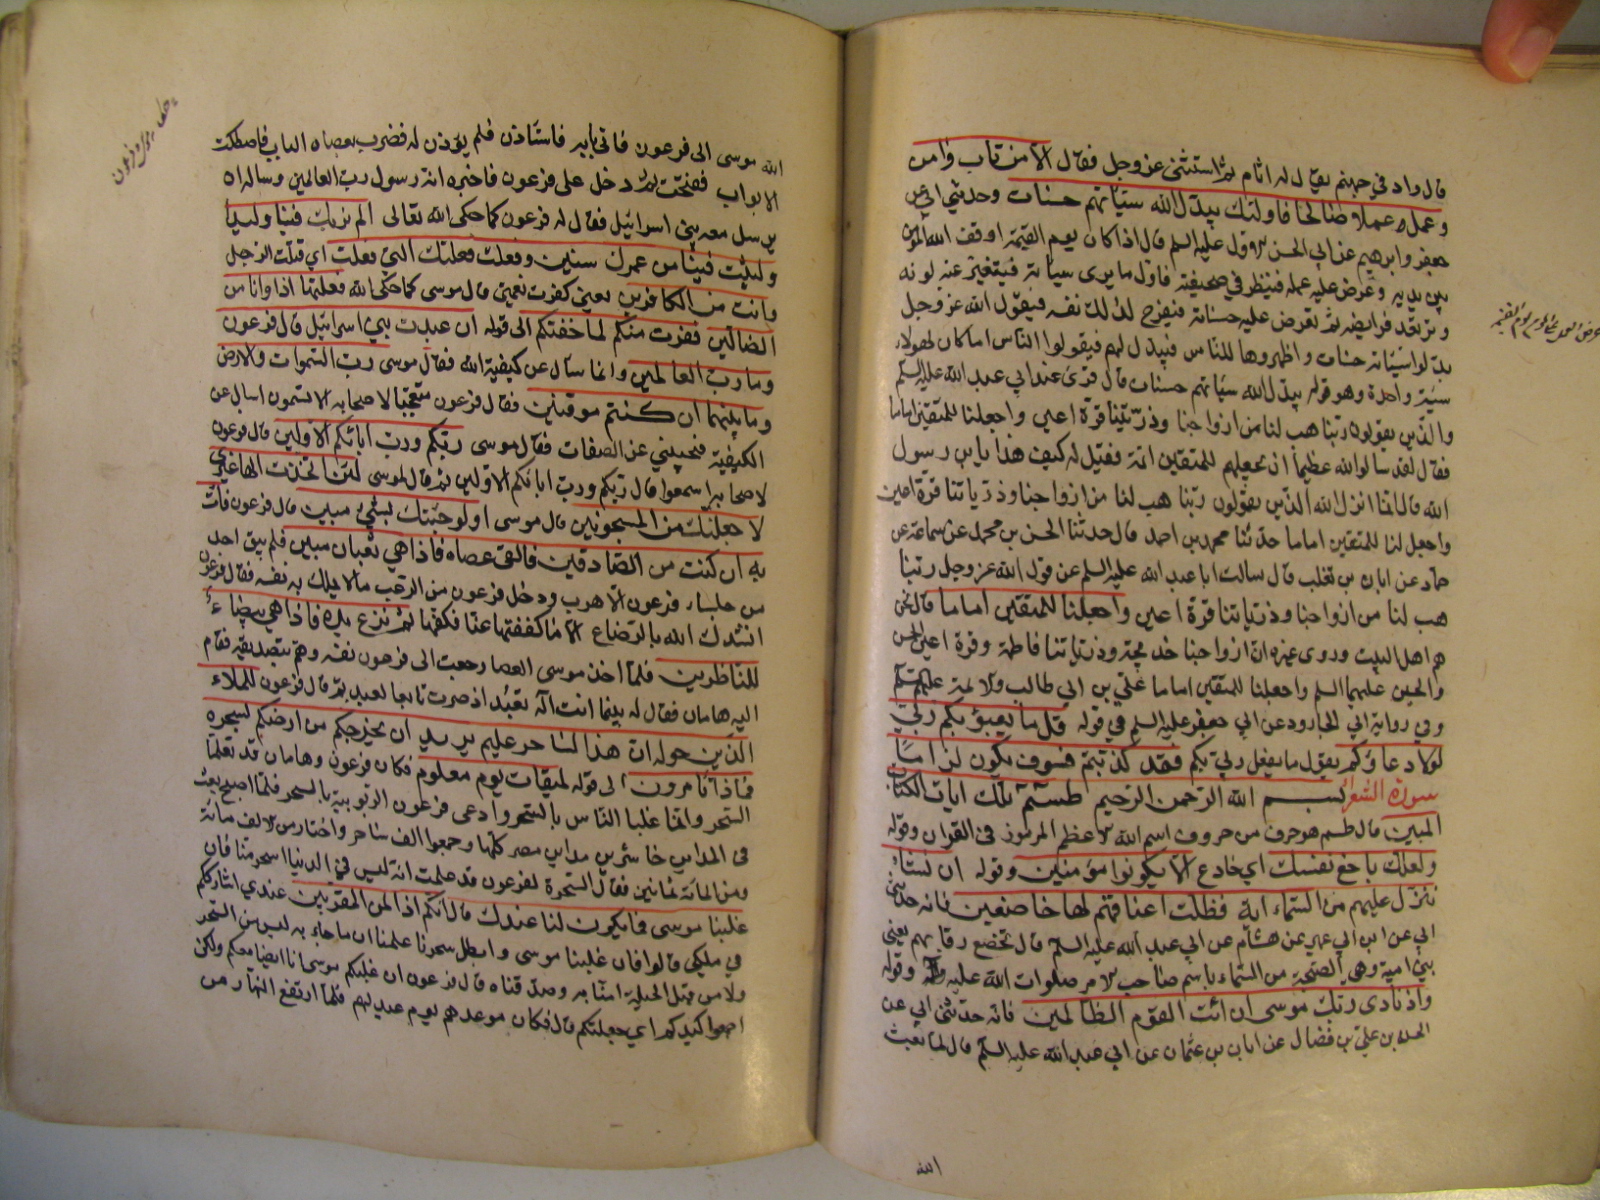 قال واد في جهنم يقال له اثام ثم استثنى عز وجل فقال الا من تاب وامن
وعمل عملا صالحا فاولئك يبدل الله سيئاتهم حسنات وحدثني ابي عن
جعفر وابرهيم عن ابي الحسن الرضا عليه السلم قال اذا كان يوم القيمة اوقف الله المؤمن
بين يديه وعرض عليه عمله فينظر في صحيفته فاول ما يرى سيئاته فيتغير عند لونه
وترتعد فرايصه ثم تعرض عليه حسناته فيفرح لذلك نفسه فيقول الله عز وجل
بدلوا سيئاته حسنات واظهروها للناس فيبدل لهم فيقولوا الناس اما كان لهولاء
سيئة واحدة وهو قوله يبدل الله سيئاتهم حسنات قال قرئ عند ابي عبد الله عليه السلم
والذين يقولون ربنا هب لنا من ازواجنا وذريتنا قرة اعين واجعلنا للمتقين اماما
فقال لقد سالوا الله عظيما ان يجعلهم للمتقين ائمة فقيل له كيف هذا يابن رسول
الله قال انما انزل الله الذين يقولون ربنا هب لنا من ازواجنا وذرياتنا قرة اعين
واجعل لنا للمتقين اماما حدثنا محمد بن احمد قال حدثنا الحسن بن محمد عن سماعة عن
حماد عن ابان بن تغلب قال سالت ابا عبد الله عليه السلم عن قول الله عز وجل ربنا
هب لنا من ازواجنا وذرياتنا قرة اعين واجعلنا للمتقين اماما قال نحن
هم اهل البيت وروى غيره ان ازواجنا خديجة وذرياتنا فاطمة وقرة اعين الحسن
والحسين عليهما السلم واجعلنا للمتقين اماما علي بن ابي طالب والائمة عليهم السلم
وفي رواية ابي الجارود عن ابي جعفر عليه السلم في قوله قل ما يعبؤ بكم ربي
لولا دعاؤكم يقول ما يفعل ربي بكم فقد كذبتم فسوف يكون لزاما
سورة الشعرا بسم الله الرحمن الرحيم طسم تلك ايات الكتاب
المبين قال طسم هو حرف من حروف اسم الله الاعظم المرموز في القران وقوله
ولعلك باخع نفسك اي خادع الا يكونوا مؤمنين وقوله ان نشاء
ننزل عليهم من السماء اية فظلت اعناقهم لها خاضعين فانه حدثني
ابي عن ابن ابي عمير عن هشام عن ابي عبد الله عليه السلم قال تخضع رقابهم يعني
بني امية وهي الصيحة من السماء باسم صاحب الامر صلوات الله عليه وقوله
واذ نادى ربك موسى ان ائت القوم الظالمين فانه حدثني ابي عن
الحسن بن علي بن فضال عن ابان بن عثمان عن ابي عبد الله عليه السلم قال لما بعث
الله
الله موسى الى فرعون فاتى بابه فاستاذن فلم يؤذن له فضرب بعصاه الباب فاصطكت
الابواب ففتحت ثم دخل على فرعون فاخبره انه رسول رب العالمين وساله ان
يرسل معه بني اسرائيل فقال له فرعون كما حكى الله تعالى الم نربك فينا وليدا
ولبثت فينا من عمرك سنين وفعلت فعلتك التي فعلت اي قتلت الرجل
وانت من الكافرين يعني كفرت نعمتي قال موسى كما حكى الله فعلتها اذا وانا من
الضالين ففررت منكم لما خفتكم الى قوله ان عبدت بني اسرائيل قال فرعون
وما رب العالمين وانما سال عن كيفية الله فقال موسى رب السموات والارض
وما بينهما ان كنتم موقنين فقال فرعون متعجبا لاصحابه الا تسمعون اساله عن
الكيفية فيجيبني عن الصفات فقال موسى ربكم ورب ابائكم الاولين قال فرعون
لاصحابه اسمعوا قال ربكم ورب ابائكم الاولين ثم قال لموسى لئن اتخذت الها غيري
لاجعلنك من المسجونين قال موسى اولو جئتك بشيء مبين قال فرعون فات
به ان كنت من الصادقين فالقى عصاه فاذا هي ثعبان مبين فلم يبق احد
من جلساء فرعون الا هرب ودخل فرعون من الرعب مالا يملك به نفسه فقال فرعون
انشدك الله بالرضاع الا ما كففتها عنا فكفها ثم نزع يده فاذا هي بيضاء
للناظرين فلما اخذ موسى العصا رجعت الى فرعون نفسه وهم بتصديقه فقام
اليه هامان فقال له بينما انت اله تعبد اذ صرت تابعا لعبد ثم قال فرعون للملاء
الذين حوله ان هذا لساحر عليم يريد ان يخرجكم من ارضكم بسحره
فماذا تامرون الى قوله لميقات يوم معلوم فكان فرعون وهامان قد تعلما
السحر وانما غلبا الناس بالسحر وادعى فرعون الربوبية بالسحر فلما اصبح بعث
في المداين حاشرين مداين مصر كلها وجمعوا الف ساحر واختار من الالف مائة
ومن المائة ثمانين فقال السحرة لفرعون قد علمت انه ليس في الدنيا اسحر منا فان
غلبنا موسى فما يكون لنا عندك قال انكم اذا لمن المقربين عندي اشارككم
في ملكي قالوا فان غلبنا موسى وابطل سحرنا علمنا ان ما جاء به ليس من السحر
ولا من قبل الحيلة امنا به وصدقناه قال فرعون ان غلبكم موسى انا ايضا معكم ولكن
اجمعوا كيدكم اي حيلتكم قال فكان موعدهم يوم عيد لهم فلما ارتفع النهار من